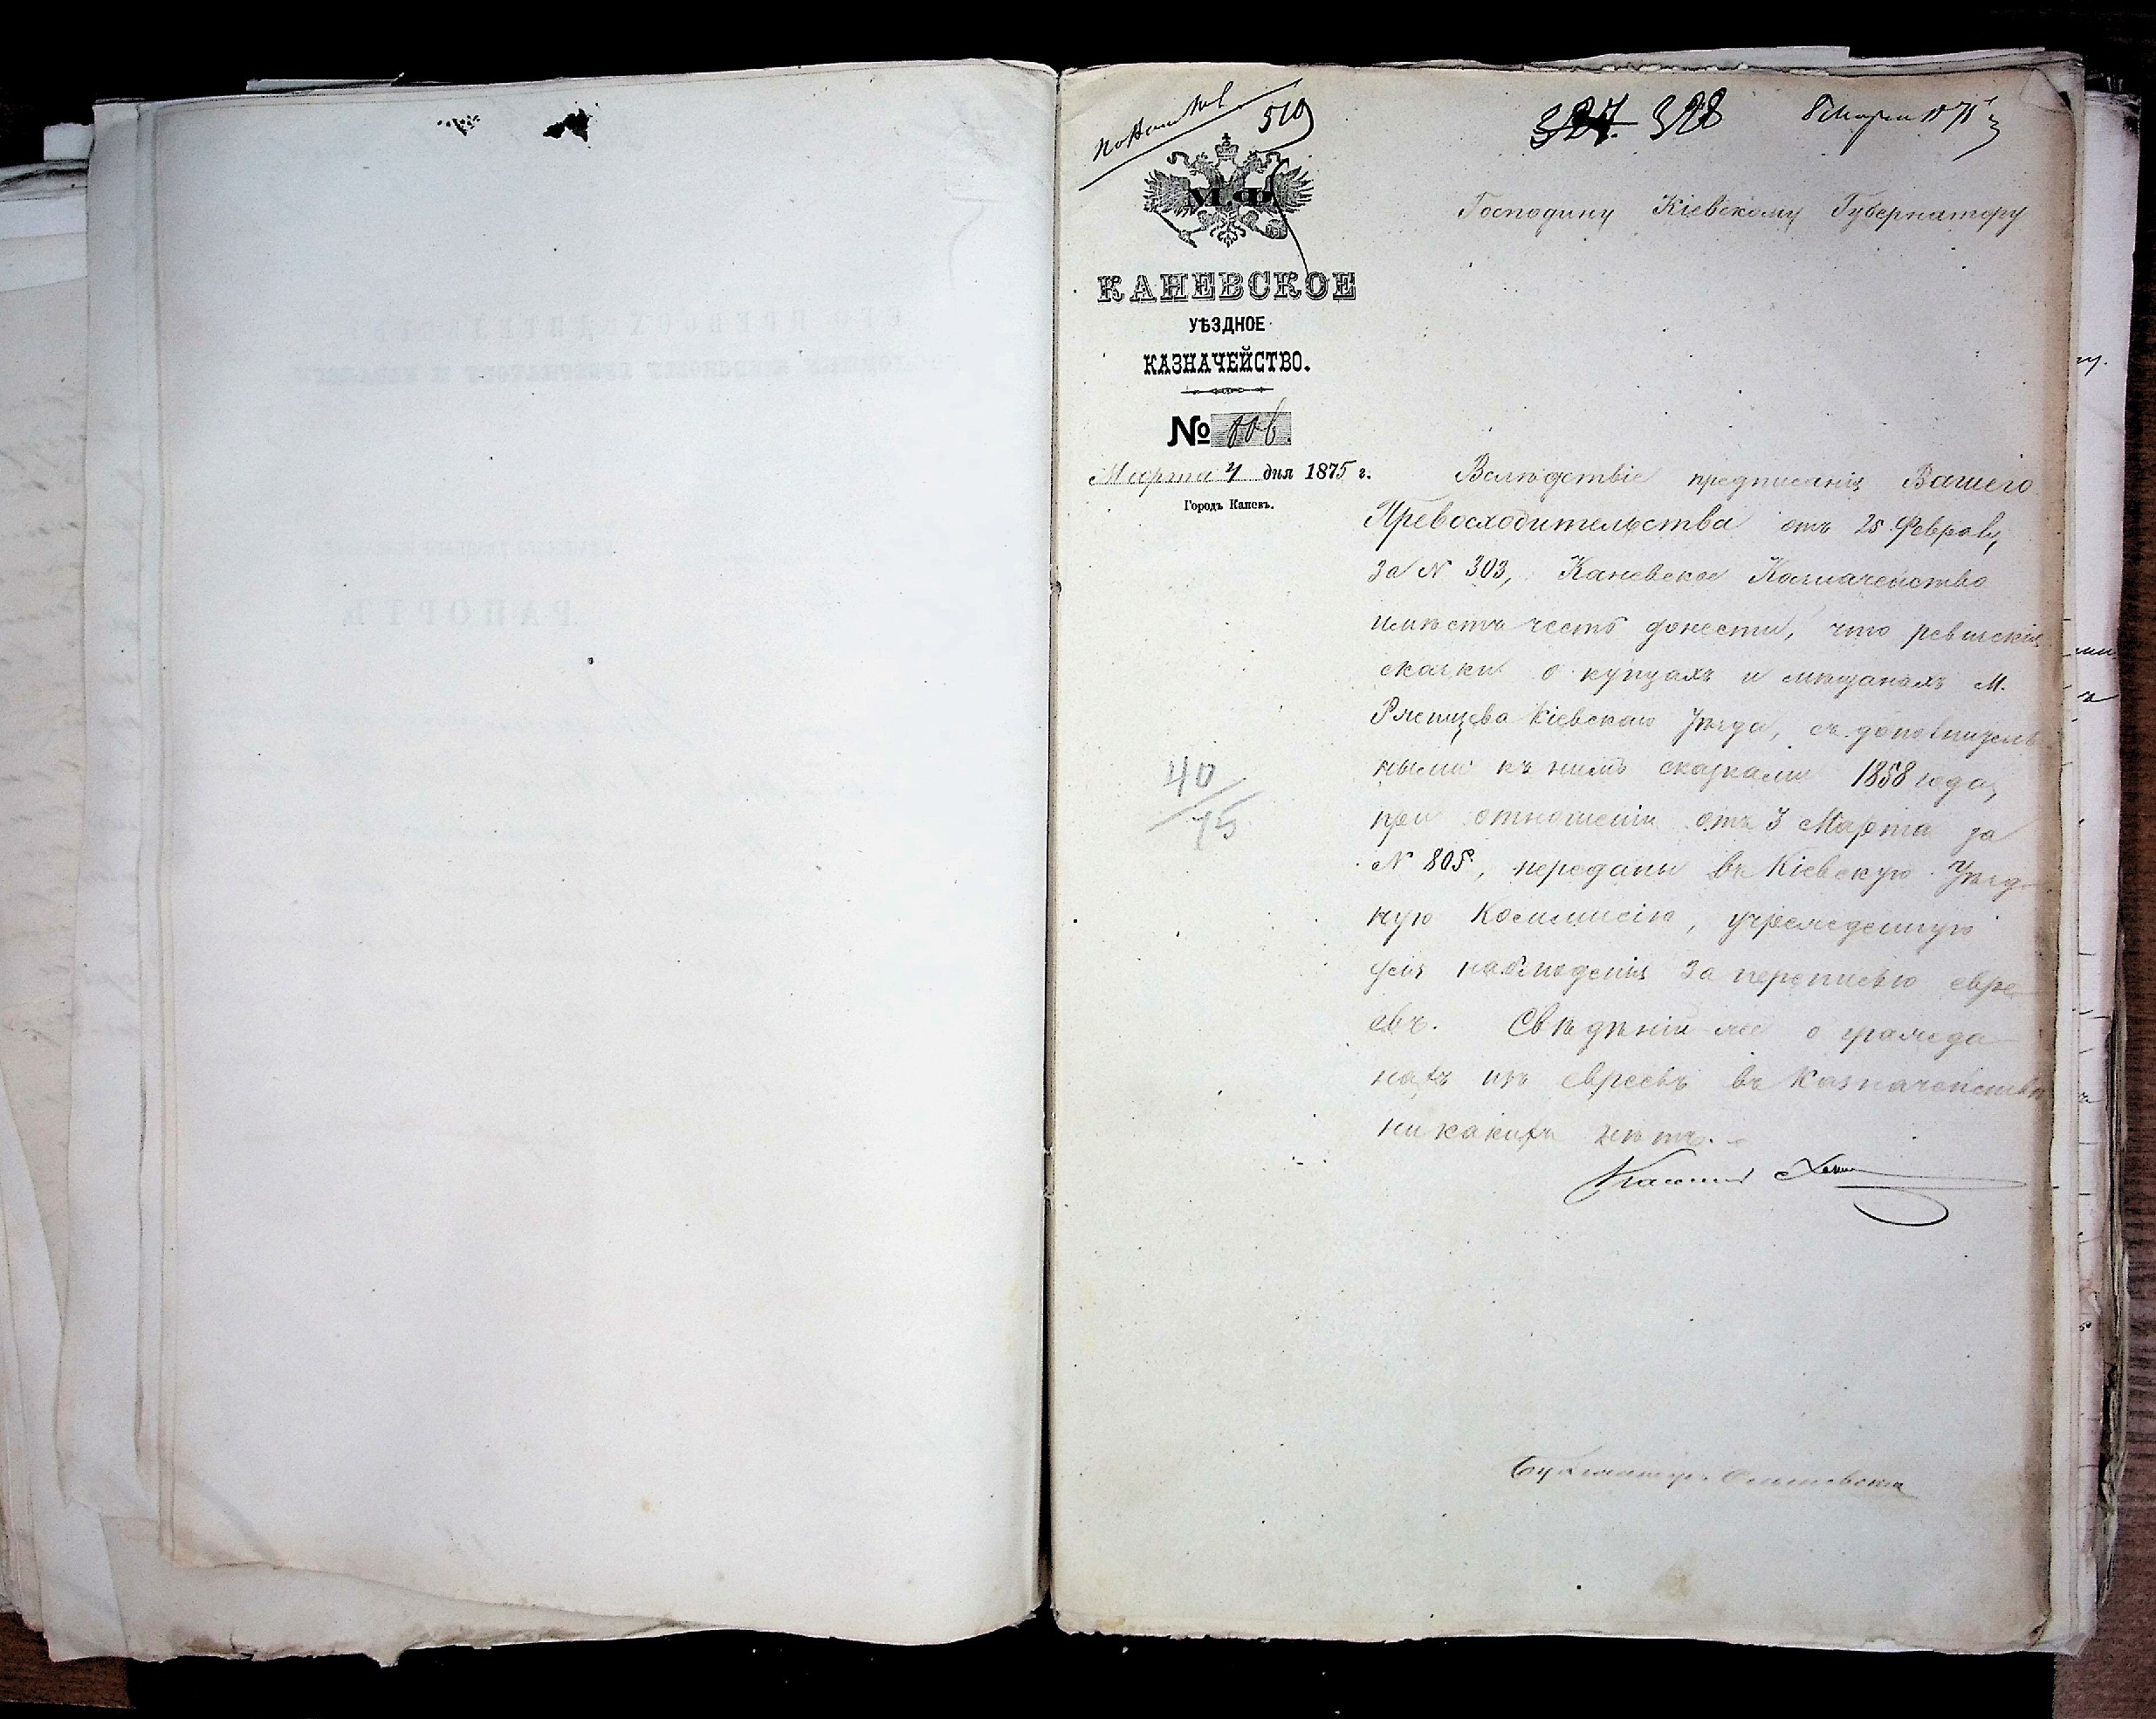 510
327. 328
8 Марта 1875 г
М.Ф.
Господину Кіевскому Губернатору
КАНЕВСКОЕ
УѢЗДНОЕ
КАЗНАЧЕЙСТВО.
№
Марта 4 дня 1875 г.
Городъ Каневъ.
Вслѣдствіе предписанія Вашего
Превосходительства отъ 25 Февраля
за N 303, Каневское Казначейство
имѣетъ честь донести, что ревизскія
сказки о купцахъ и мѣщанахъ м.
Ржищева Кіевскаго Уѣзда, съ дополнитель
ными къ нимъ сказками 1858 года,
при отношеніи отъ 3 Марта за
N 805, переданы въ Кіевскую Уѣзд
ную Коммисію, учрежденную
для наблюденія за переписью евре
евъ. Свѣдѣній же о гражда
нахъ изъ евреевъ въ Казначействѣ
никакихъ нѣтъ.
40
75
Казначей
Бухгалтеръ
РАПОРТЪ